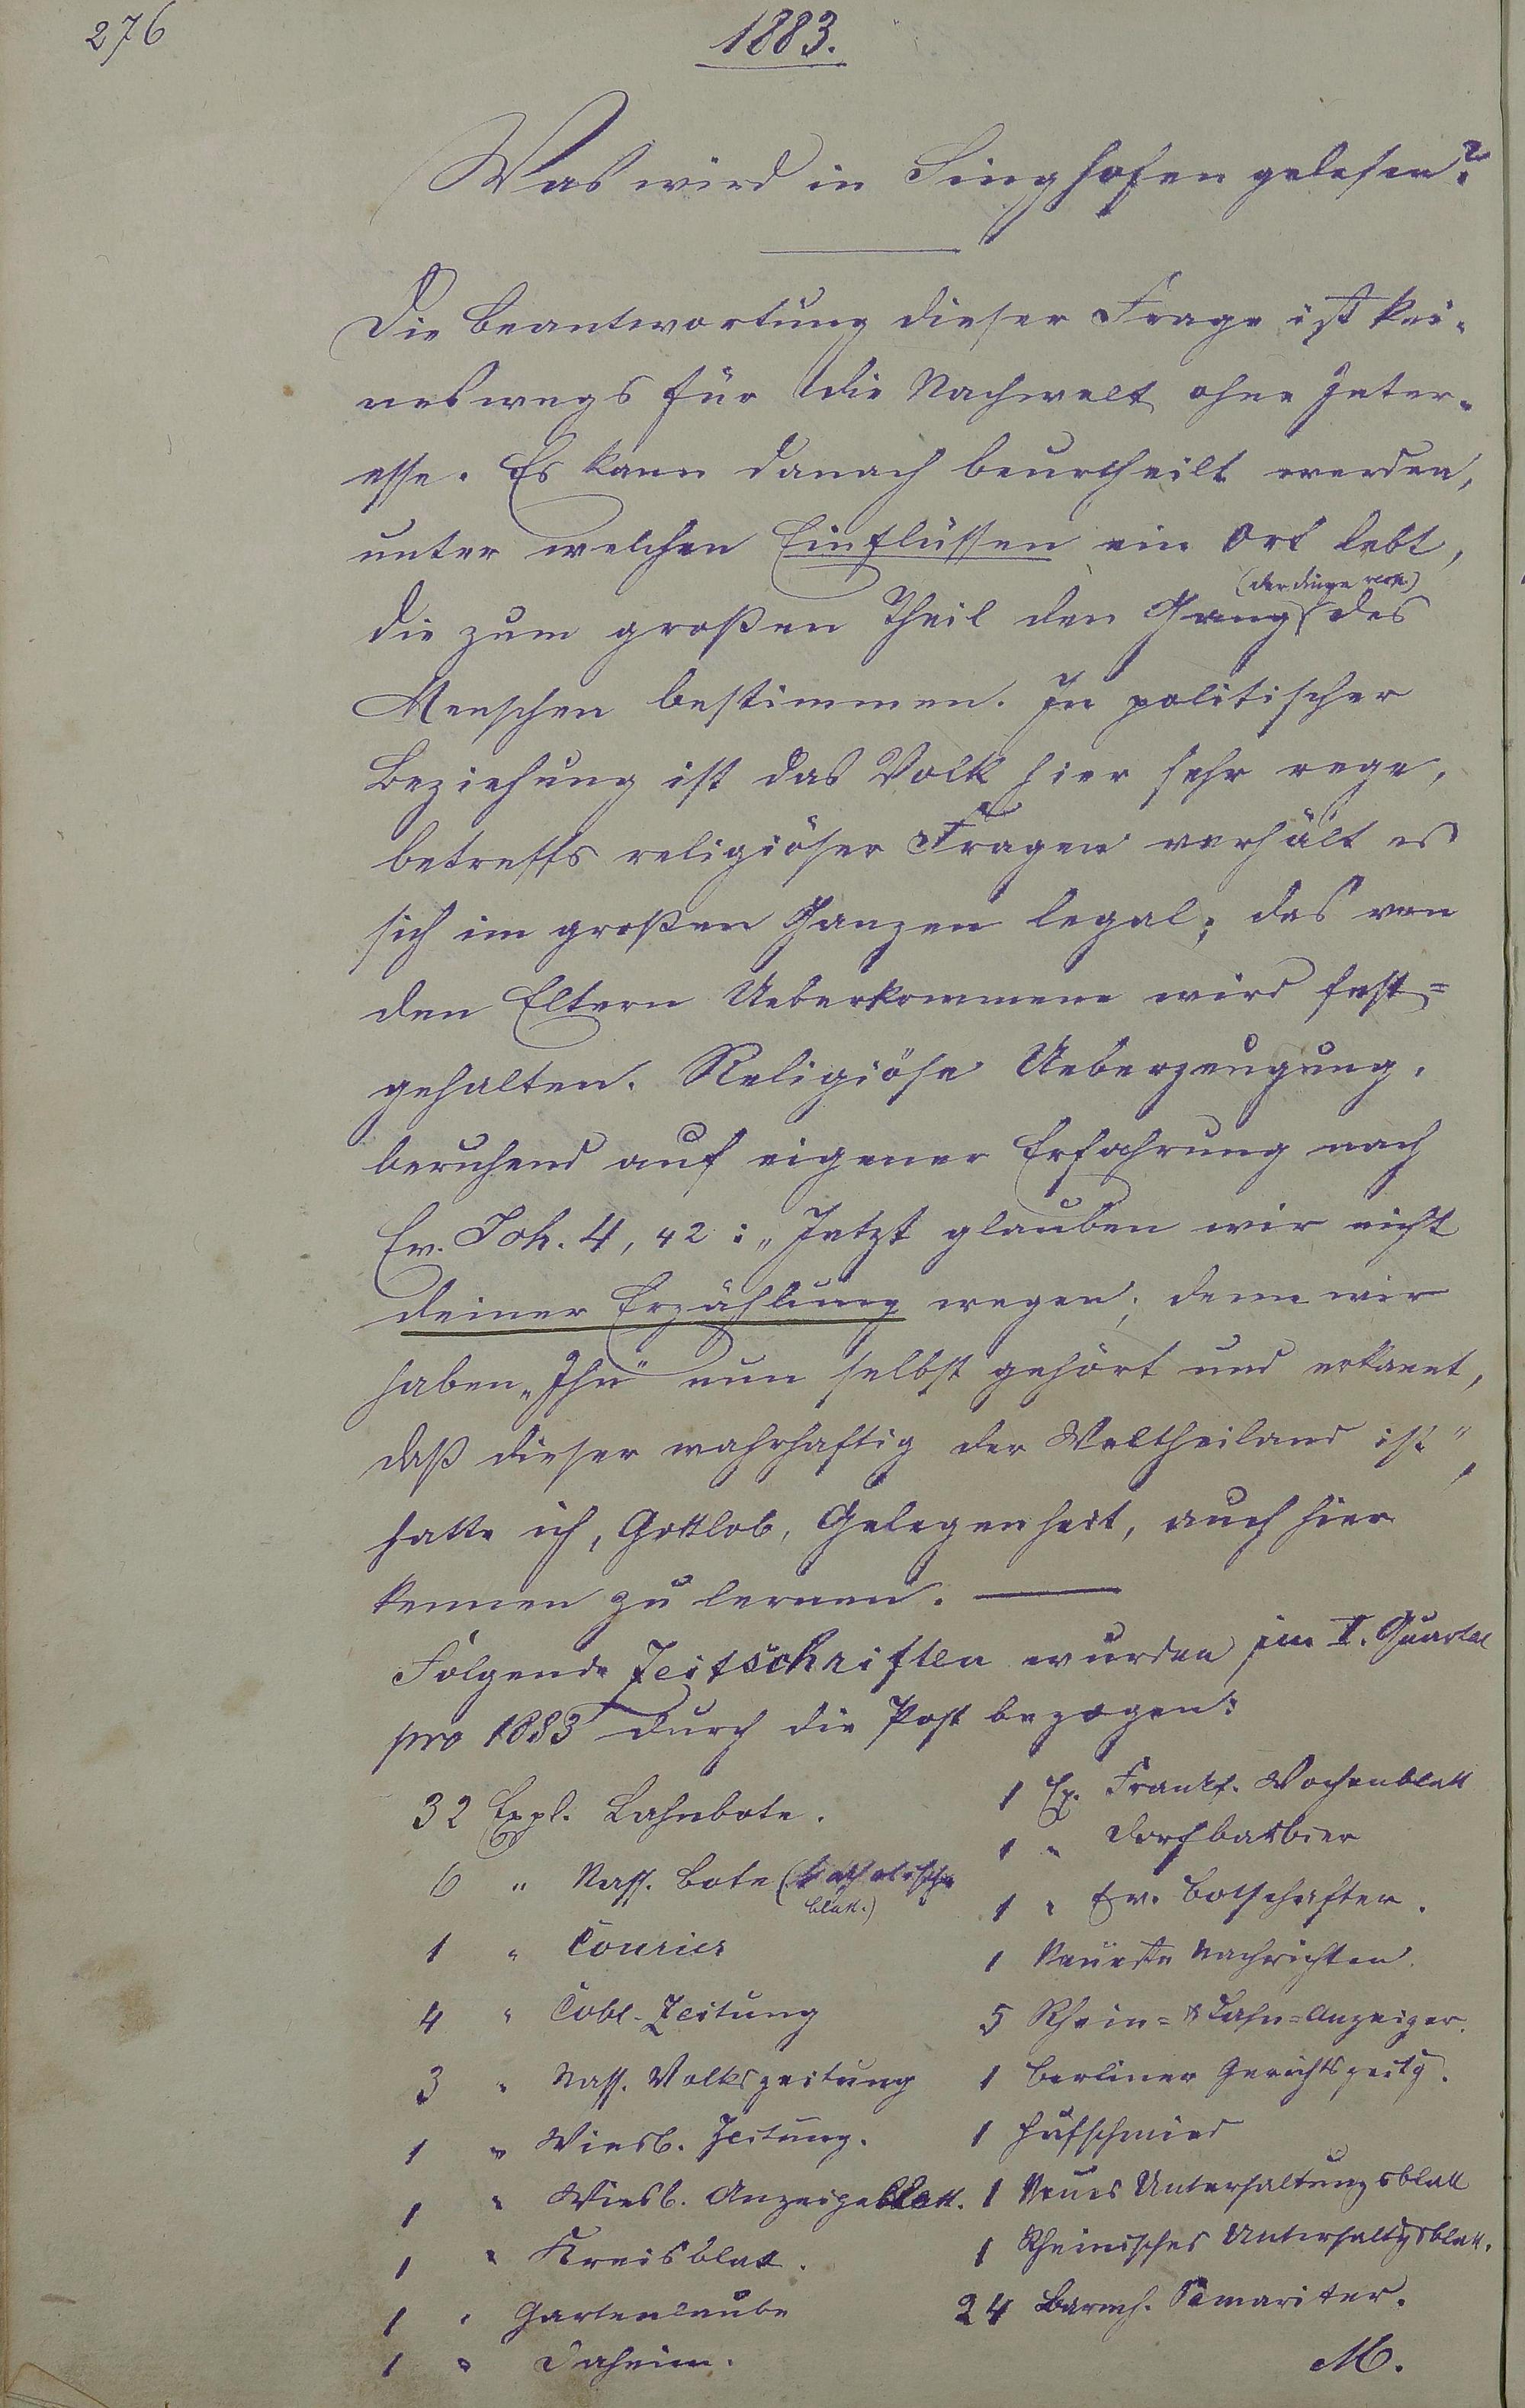 276
1883.
Was wird in Singhofen gelesen?
Die Beantwortung dieser Frage ist kei-
neswegs für die Nachwelt ohne Inter-
esse. Es kann danach beurtheilt werden,
unter welchen Einflüssen ein Ort lebt,
die zum großen Theil den Gang (der Dinge resp.) des
Menschen bestimmen. In politischer
Beziehung ist das Volk hier sehr rege,
betreffs religiöser Fragen verhält es
sich im großen Ganzen legal; das von
den Eltern Ueberkommene wird fest=
gehalten. Religiöse Ueberzeugung,
beruhend auf eigener Erfahrung nach
Ev. Joh. 4, 42: „Jetzt glauben wir nicht
deiner Erzählung wegen; denn wir
haben „Ihn" nun selbst gehört und erkannt,
daß dieser wahrhaftig der Weltheiland ist",
hatte ich, Gottlob, Gelegenheit, auch hier
kennen zu lernen. —
Folgende Zeitschriften wurden im II. Quartal
pro 1883 durch die Post bezogen:
32 Expl. Lahnbote.
6 " Nass. Bote (katholisches
Blatt.)
1 " Courier
4 " Cobl. Zeitung
3 " Nass. Volkszeitung
1 " Wiesb. Zeitung.
1 " Wiesb. Anzeigeblatt.
1 " Kreisblatt.
1 " Gartenlaube
1 " Daheim.
1 Ex. Frankf. Wochenblatt
1 " Dorfbarbier
1 " Ev. Botschafter.
1 Neueste Nachrichten.
5 Rhein= & Lahn=Anzeiger.
1 Berliner Gerichtszeitg.
1 Hufschmied
1 Neues Unterhaltungsblatt
1 Rheinisches Unterhaltgsblatt.
24 Barmh. Samariter.
M.